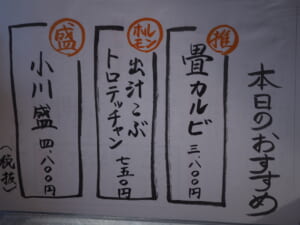 本日のおすすめ
推
畳カルビ 三、八〇〇円
ホルモン
出汁こぶ
トロテッチャン 七五〇円
盛
小川盛 四、八〇〇円
(税抜)